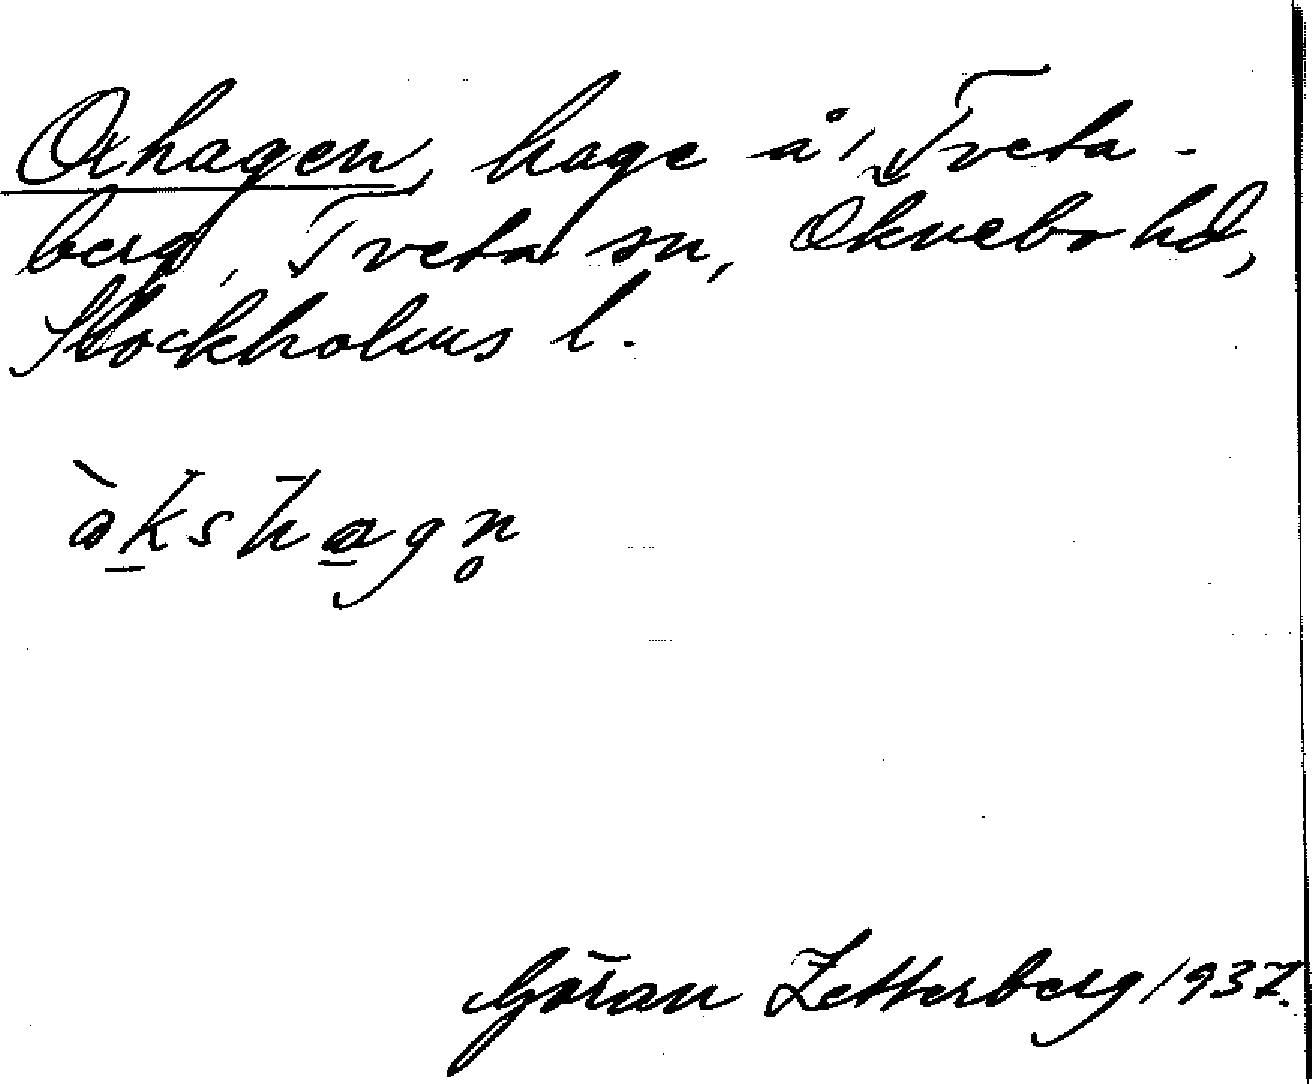 Oxhagen, hage å, Tveta-
berg, Tveta sn, Öknebo hd,
Stockholms l.
åkshagn̥
Göran Zetterberg 1937.